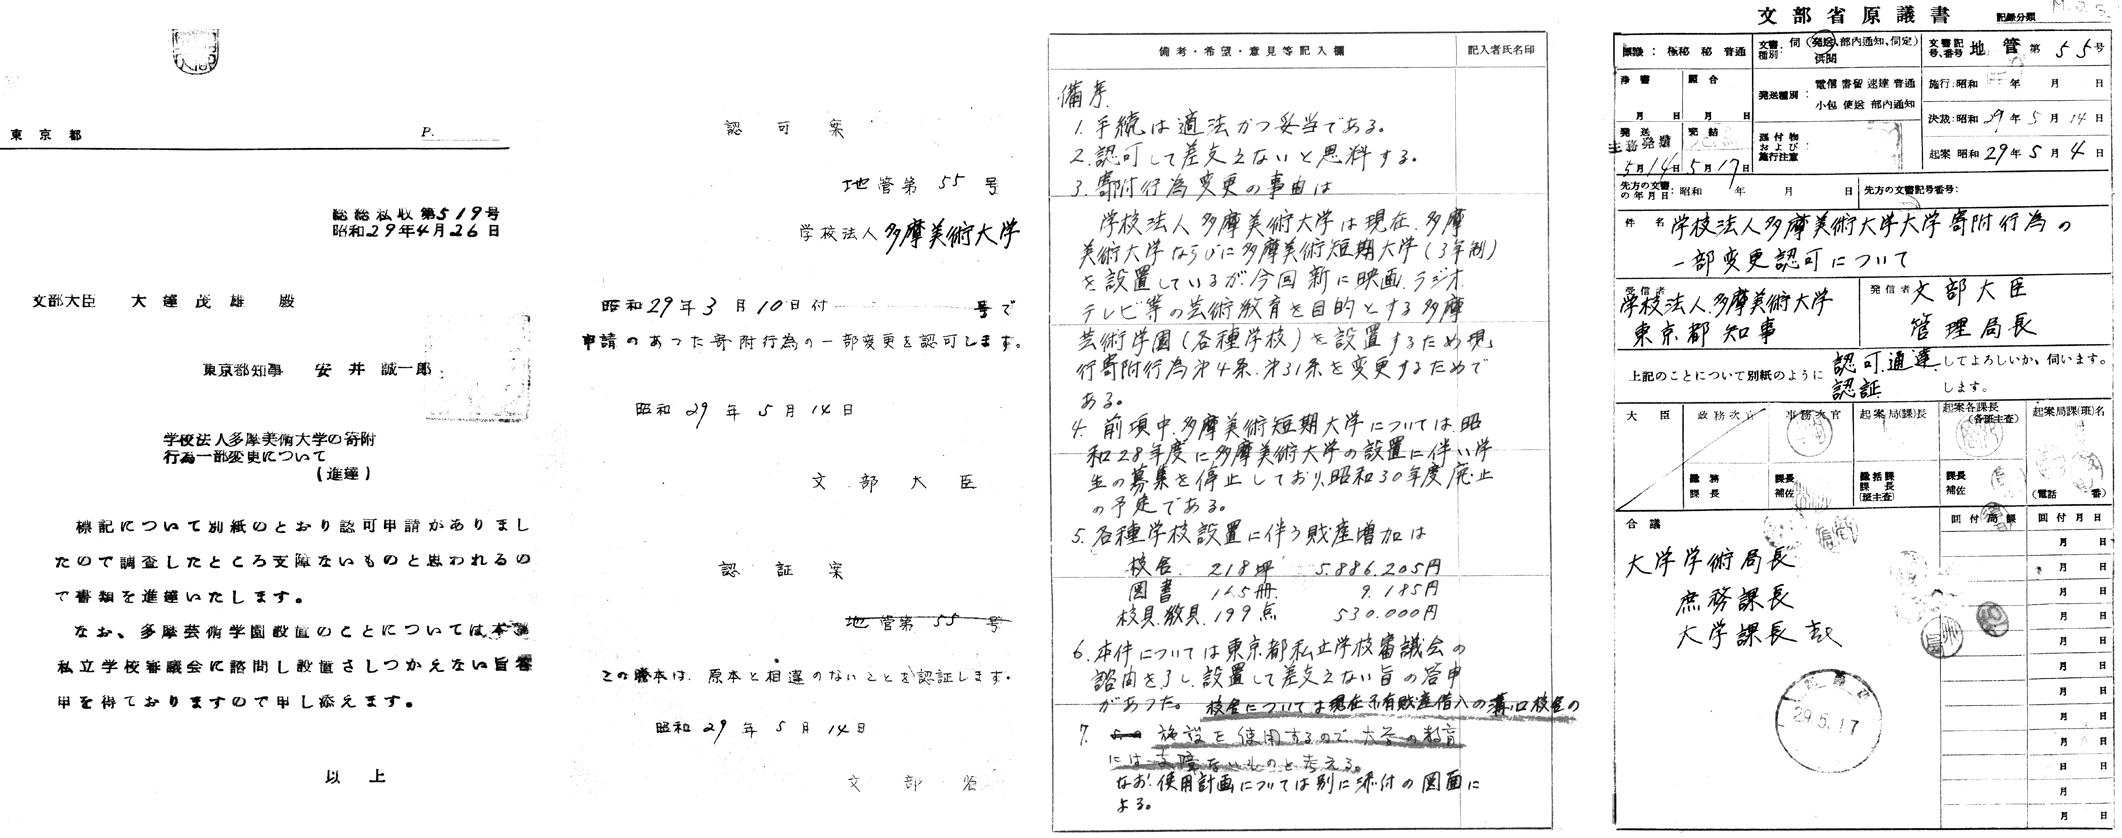 東京都
P.
総総私収第519号
昭和29年4月26日
文部大臣 大達茂雄 殿
東京都知事 安井誠一郎
学校法人多摩美術大学の寄附
行為一部変更について
(進達)
標記について別紙のとおり認可申請がありまし
たので調査したところ支障ないものと思われるの
で書類を進達いたします。
なお、多摩芸術学園設置のことについては本
私立学校審議会に諮問し設置さしつかえない旨答
申を得ておりますので申し添えます。
以上
認可案
地管第55号
学校法人多摩美術大学
昭和29年3月10日付 号で
申請のあつた寄附行為の一部変更を認可します。
昭和29年5月14日
文部大臣
認証案
地管第55号
この謄本は、原本と相違のないことを認証します。
昭和29年5月14日
文部省
備考・希望・意見等記入欄
記入者氏名印
備考
1. 手続は適法かつ妥当である。
2. 認可して差支えないと思料する。
3. 寄附行為変更の事由は
学校法人多摩美術大学は現在、多摩
美術大学ならびに多摩美術短期大学(3年制)
を設置しているが今回新に映画、ラジオ、
テレビ等の芸術教育を目的とする多摩
芸術学園(各種学校)を設置するため現
行寄附行為第4条、第31条を変更するためで
ある。
4. 前項中、多摩美術短期大学については、昭
和28年度に多摩美術大学の設置に伴い学
生の募集を停止しており、昭和30年度廃止
の予定である。
5. 各種学校設置に伴う財産増加は
校舎 218坪 5.886.205円
図書 165冊 9.185円
校具、教具 199点 530.000円
6. 本件については東京都私立学校審議会の
諮問を了し、設置して差支えない旨の答申
があつた。 校舎については現在不有財産借入の溝ノ口校舎の
7. 施設を使用するので大学の教育
には支障ないものと考える。
なお、使用計画については別に添付の図面に
よる。
文部省原議書
記録分類
標識: 極秘 秘 普通
文書種別: 伺(発送、部内通知、伺定) 供閲
文書記号、番号 地管 第55号
浄書 月 日
照合 月 日
発送種別: 電信 書留 速達 普通
小包 使送 部内通知
施行:昭和 年 月 日
決裁:昭和29年5月14日
発送 主務発送 5月14日
完結 5月17日
添付物および施行注意
起案 昭和29年5月4日
先方の文書の年月日: 昭和 年 月 日
先方の文書記号番号:
件名 学校法人多摩美術大学大学寄附行為の
一部変更認可について
受信者 学校法人多摩美術大学
東京都知事
発信者 文部大臣
管理局長
上記のことについて別紙のように 認可、通達 してよろしいか、伺います。
認証 します。
大臣
政務次官
事務次官
起案局(課)長
起案各課長(各班主査)
起案局課(班)名
総務課長
課長補佐
総括課課長(班主査)
課長補佐
(電話 番)
合議
回付局課
回付月日
大学学術局長
庶務課長
大学課長
29.5.17
月 日
月 日
月 日
月 日
月 日
月 日
月 日
月 日
月 日
月 日
月 日
月 日